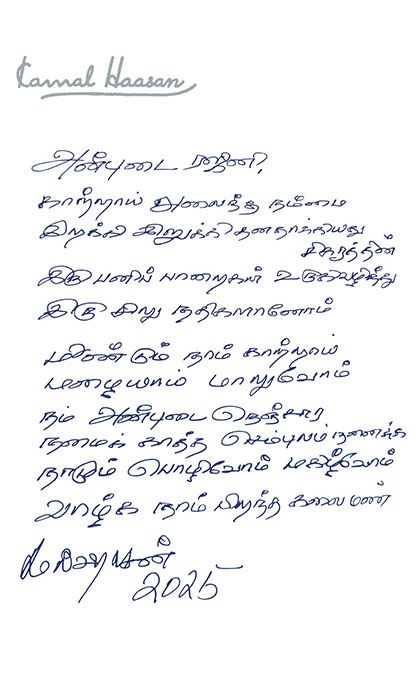 Kamal Haasan
அன்புடை ரஜினி,
காற்றாய் அலைந்த நம்மை
இறக்கி இறுக்கி தனதாக்கியது
சிகரத்தின்
இரு பனிப் பாறைகள் உருகிவழிந்து
இரு சிறு நதிகளானோம்
மீண்டும் நாம் காற்றாய்
மழையாய் மாறுவோம்
நம் அன்புடை நெஞ்சார
நமைக் காத்த செம்புலம் நனைக்க
நாடும் பொழிவோம் மகிழ்வோம்
வாழ்க நாம் பிறந்த கலை மண்
2025